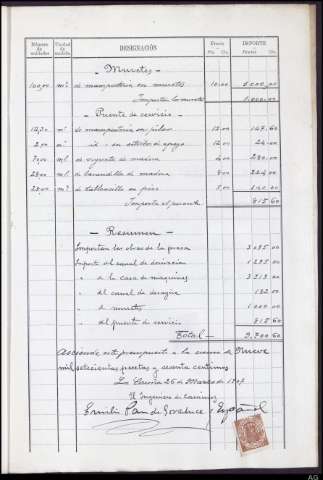 Número de unidades Unidad de medida DESIGNACIÓN Precio Pts. Cts. IMPORTE Pesetas Cts.
- Muretes -
100,00 m³ de mampostería en muretes 10.00 1.000.00
Importan los muretes 1.000.00
- Puente de servicio -
12,30 m³ de mampostería en pilas 12.00 147.60
2,00 m³ id - en estribos de apoyo 12.00 24.00
70,00 ml de vigueta de madera 4.00 280.00
28,00 ml de barandilla de madera 8.00 224.00
28,00 m² de tabloncillo en piso 5,00 140.00
Importa el puente 815.60
- Resumen -
Importan las obras de la presa
Importe del canal de derivación
" de la casa de máquinas
" del canal de desagüe
" de muretes 1.000.00
" del puente de servicio 815.60
Total 9.700.60
Asciende este presupuesto a la suma de Nueve
mil setecientas pesetas y sesenta céntimos
La Coruña 26 de Marzo de 1907
El Ingeniero de Caminos
Emilio Pan de Soraluce y Español
AG